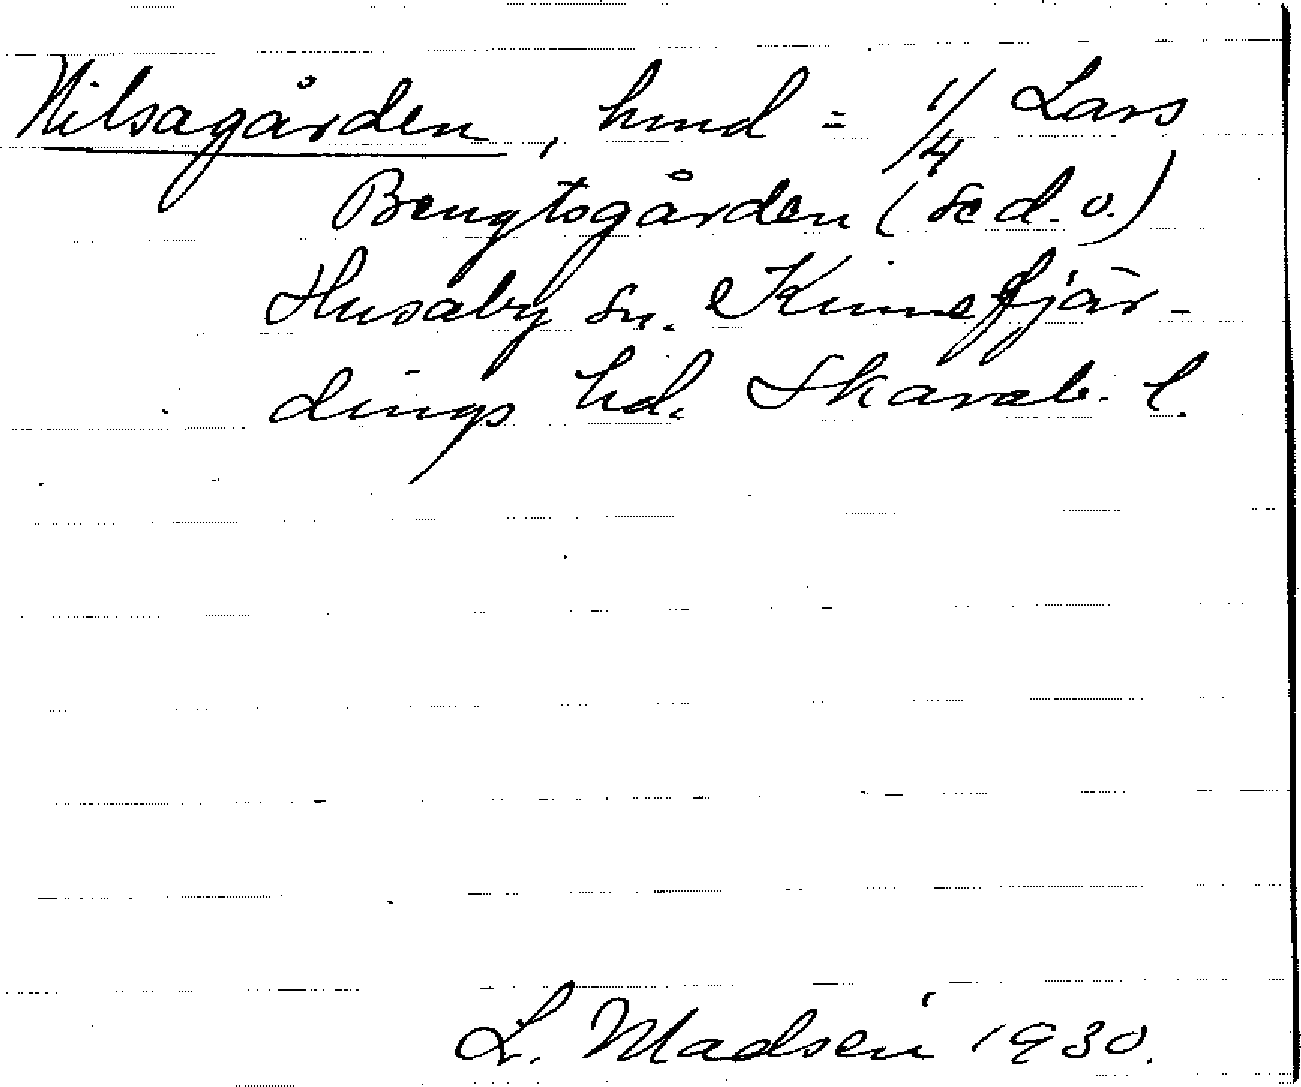 Nilsagården, hmd = 1/4 Lars
Bengtsgården (se d. o.)
Husaby sn. Kinnefjär-
dings hd. Skarab. l.
L. Madsén 1930.